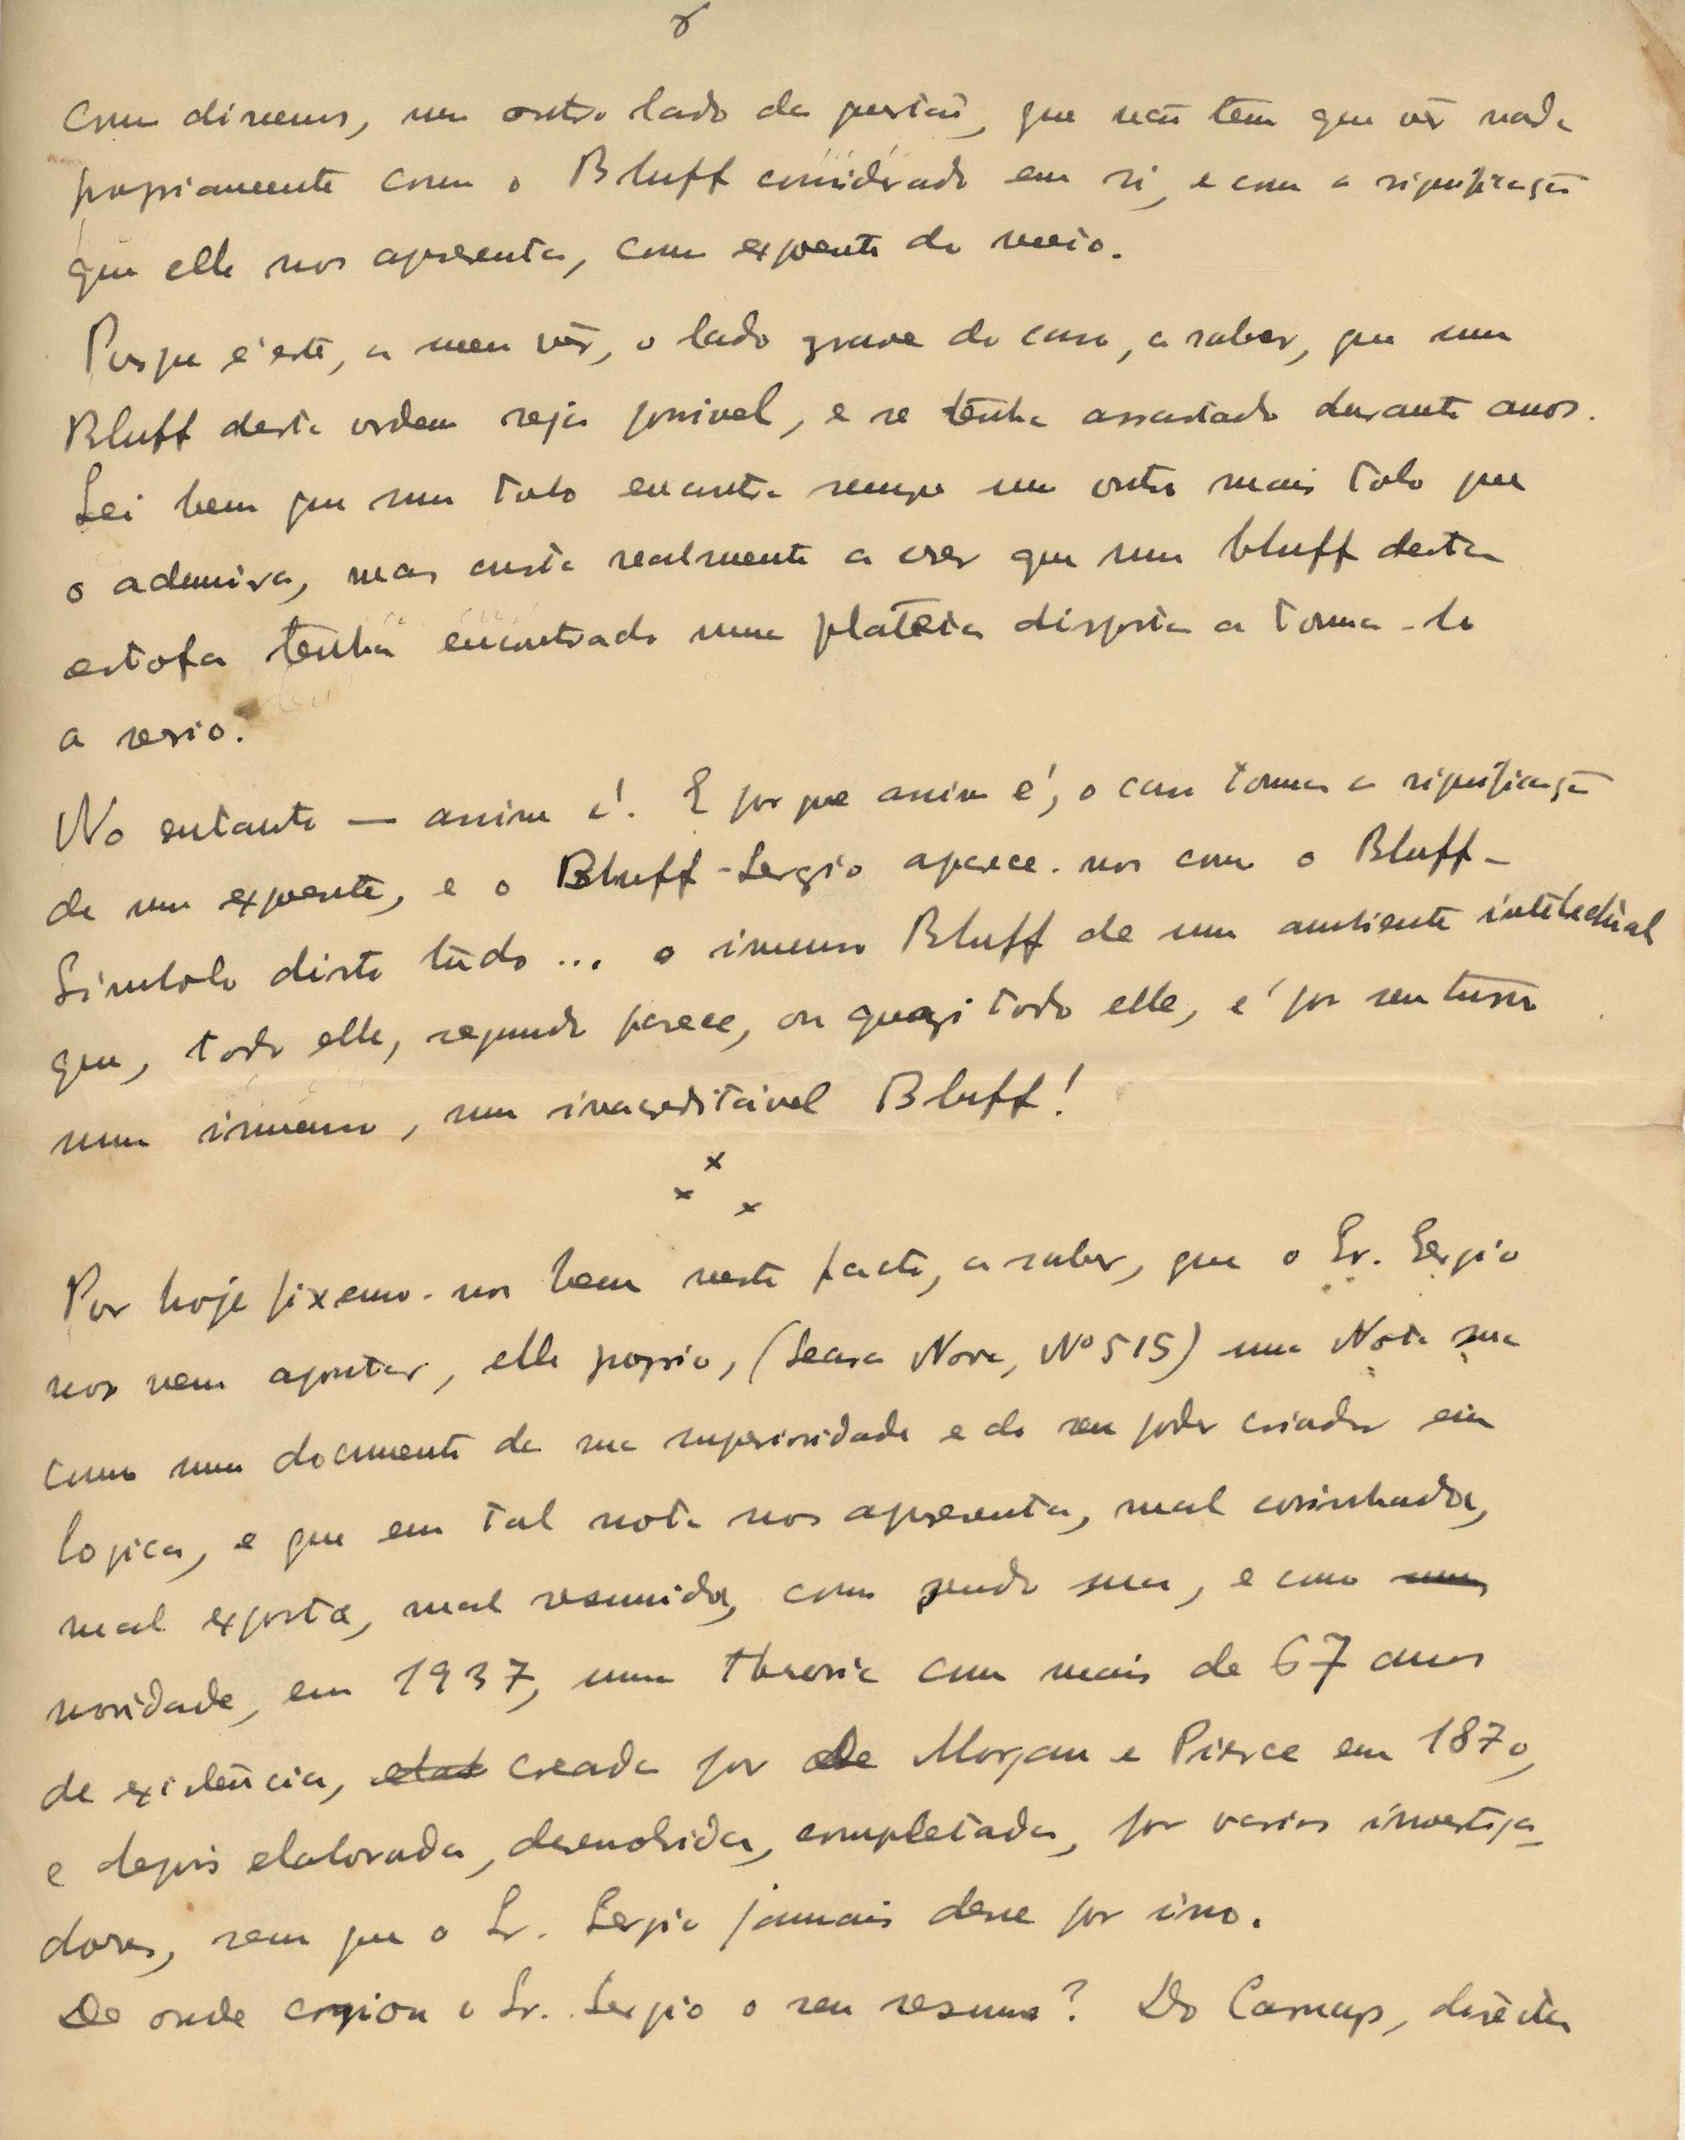 8
como dissemos, um outro lado da questão, que não tem que vêr nada
propriamente com o Bluff considerado em si, e com a significação
que elle nos apresenta, como expoente do meio.
Porque é este, a meu vêr, o lado grave do caso, a saber, que um
Bluff desta ordem seja possivel, e se tenha arrastado durante anos.
Sei bem que um tolo encontra sempre um outro mais tolo que
o admira, mas custa realmente a crer que um bluff desta
estofa tenha encontrado uma plateia disposta a toma-lo
a serio.
No entanto — assim é! E por que assim é, o caso toma a significação
de um expoente, e o Bluff-Sergio aparece-nos como o Bluff-
Simbolo disto tudo ... o imenso Bluff de um ambiente intelectual
que, todo elle, segundo parece, ou quazi todo elle, é por seu turno
um imenso, um inacreditável Bluff!
x
x x
Por hoje fixemo-nos bem neste facto, a saber, que o Sr. Sergio
nos vem apontar, elle proprio, (Seara Nova, Nº 515) uma Nota sua
como um documento da sua superioridade e do seu poder criador em
logica, e que em tal nota nos apresenta, mal cosinhada,
mal exposta, mal resumida, como sendo sua, e como
novidade, em 1937, uma theoria com mais de 67 anos
de existência, creada por De Morgan e Pierce em 1870,
e depois elaborada, desenvolvida, completada, por varios investiga-
dores, sem que o Sr. Sergio jamais desse por isso.
De onde copiou o Sr. Sergio o seu resumo? Do Carnap, directa